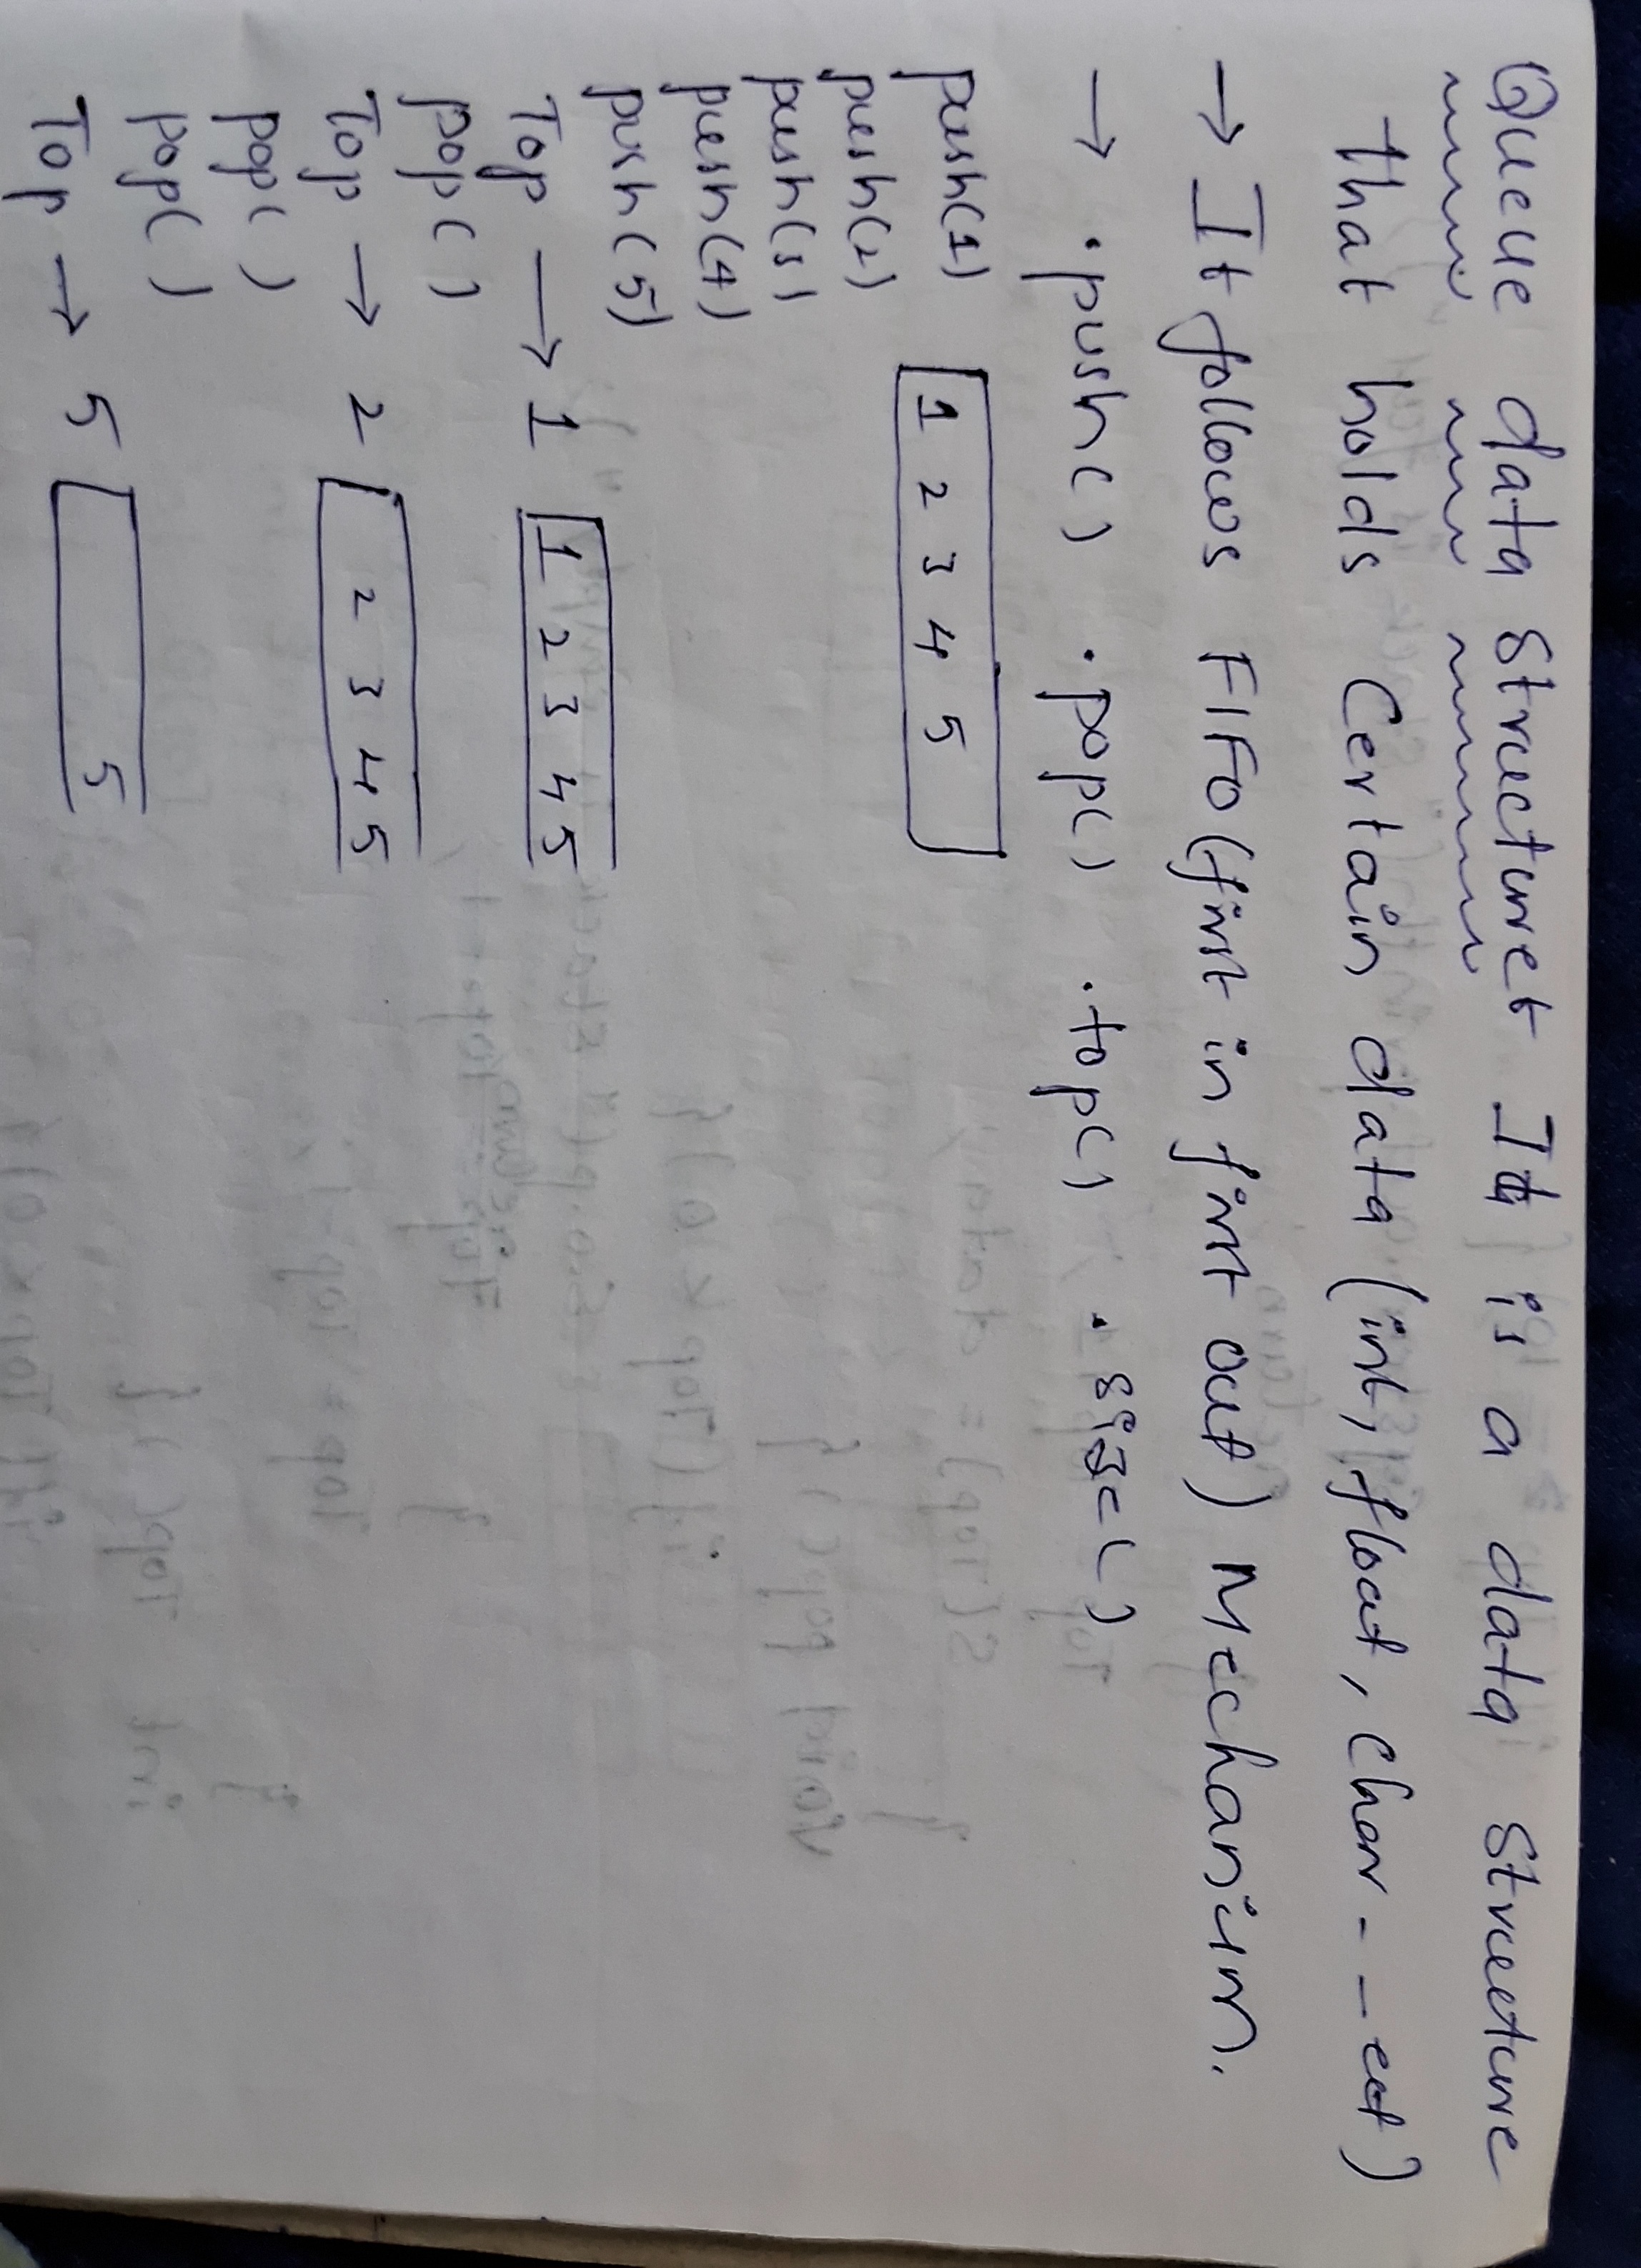 Queue data structure It is a data structure
that holds certain data (int, float, char - - - ect)
→ It follows FIFO (first in first out) Mechanism.
→ .push() .pop() .top() .size()
push(1)
1 2 3 4 5
push(2)
push(3)
push(4)
push(5)
Top → 1 1 2 3 4 5
pop()
Top → 2 2 3 4 5
pop()
pop()
Top → 5 5